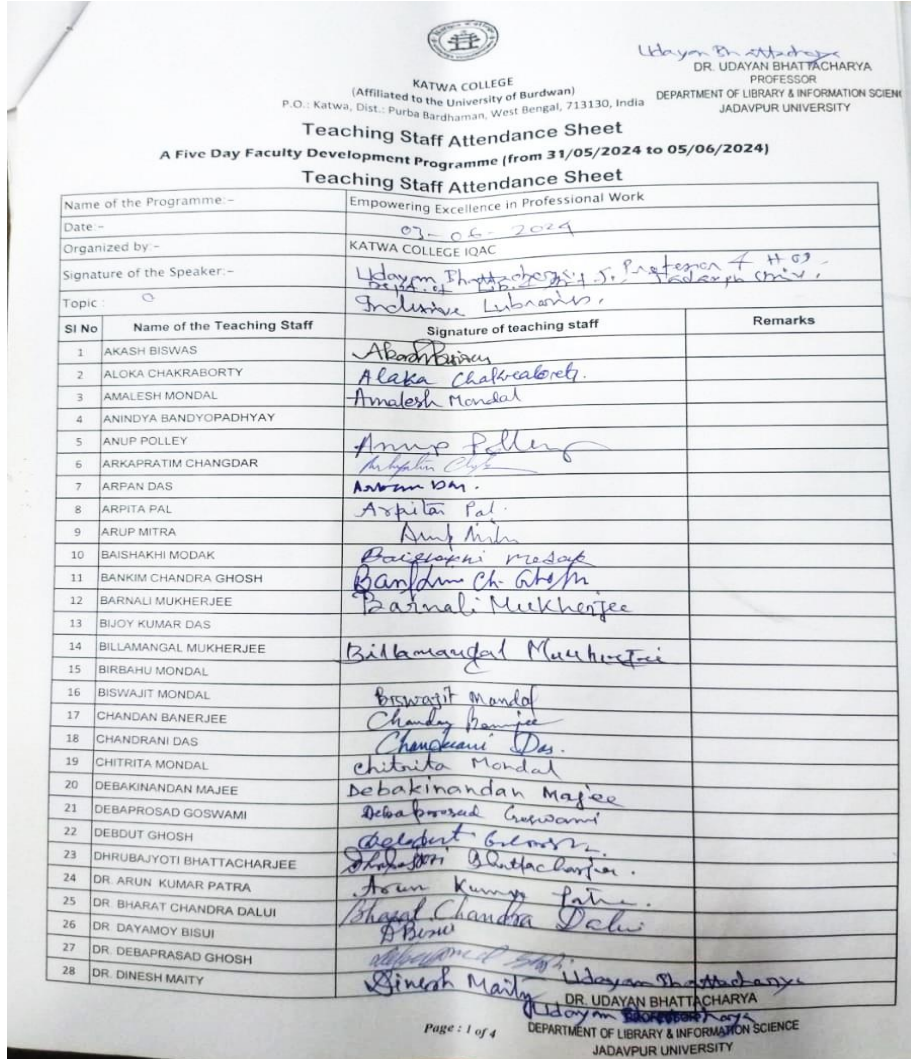 Udayan Bhattacharya
DR. UDAYAN BHATTACHARYA
PROFESSOR
DEPARTMENT OF LIBRARY & INFORMATION SCIEN
JADAVPUR UNIVERSITY
KATWA COLLEGE
(Affiliated to the University of Burdwan)
P.O.: Katwa, Dist.: Purba Bardhaman, West Bengal, 713130, India
Teaching Staff Attendance Sheet
A Five Day Faculty Development Programme (from 31/05/2024 to 05/06/2024)
Teaching Staff Attendance Sheet
Name of the Programme:- Empowering Excellence in Professional Work
Date:- 03-06-2024
Organized by:- KATWA COLLEGE IQAC
Signature of the Speaker:- Udayan Bhattacharya, Professor & HOD
Dept. of Lib. Jadavpur Univ.
Topic : Inclusive Libraries.
Sl No Name of the Teaching Staff Signature of teaching staff Remarks
1 AKASH BISWAS Akash Biswas
2 ALOKA CHAKRABORTY Alaka Chakraborty.
3 AMALESH MONDAL Amalesh Mondal
4 ANINDYA BANDYOPADHYAY
5 ANUP POLLEY Anup Polley
6 ARKAPRATIM CHANGDAR
7 ARPAN DAS Arpan Das.
8 ARPITA PAL Arpita Pal.
9 ARUP MITRA Arup Mitra
10 BAISHAKHI MODAK Baishakhi Modak
11 BANKIM CHANDRA GHOSH Bankim Ch. Ghosh
12 BARNALI MUKHERJEE Barnali Mukherjee
13 BIJOY KUMAR DAS
14 BILLAMANGAL MUKHERJEE Billamangal Mukherjee
15 BIRBAHU MONDAL
16 BISWAJIT MONDAL Biswajit Mandal
17 CHANDAN BANERJEE Chandan Banerjee
18 CHANDRANI DAS Chandrani Das.
19 CHITRITA MONDAL Chitrita Mondal
20 DEBAKINANDAN MAJEE Debakinandan Majee
21 DEBAPROSAD GOSWAMI Debaprosad Goswami
22 DEBDUT GHOSH Debdut Ghosh.
23 DHRUBAJYOTI BHATTACHARJEE Dhrubajyoti Bhattacharjee.
24 DR. ARUN KUMAR PATRA Arun Kumar Patra.
25 DR. BHARAT CHANDRA DALUI Bharat Chandra Dalui
26 DR DAYAMOY BISUI DBisui
27 DR. DEBAPRASAD GHOSH
28 DR. DINESH MAITY Dinesh Maity
Udayan Bhattacharya
DR. UDAYAN BHATTACHARYA
Udayan Bhattacharya
DEPARTMENT OF LIBRARY & INFORMATION SCIENCE
JADAVPUR UNIVERSITY
Page : 1 of 4